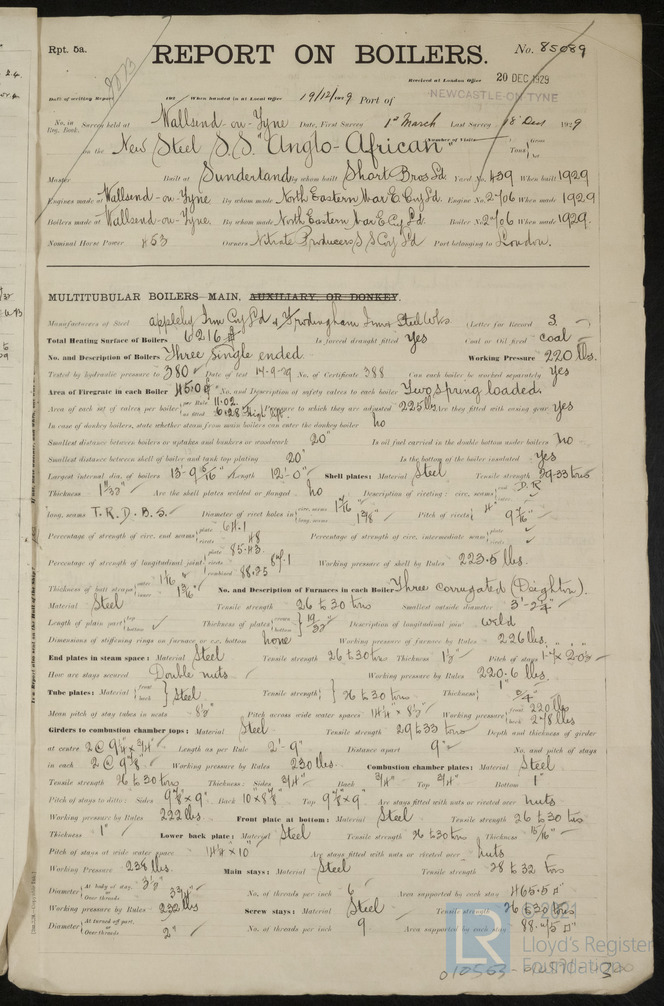 Rpt. 5a.
REPORT ON BOILERS.
No. 85089
Received at London Office 20 DEC 1929
Date of writing Report 192 When handed in at Local Office 19/12/1929 Port of NEWCASTLE-ON-TYNE
No. in Reg. Book. Survey held at Wallsend-on-Tyne Date, First Survey 1st March Last Survey 18 Decr 1929
on the New Steel S.S. "Anglo-African" Number of Visits Tons
Master Built at Sunderland By whom built Short Bros Ld. Yard No. 439 When built 1929
Engines made at Wallsend-on-Tyne By whom made North Eastern Mar E Coy Ld. Engine No. 2706 When made 1929
Boilers made at Wallsend-on-Tyne By whom made North Eastern Mar E Coy Ld. Boiler No. 2706 When made 1929.
Nominal Horse Power 453 Owners Nitrate Producers S S Coy Ld Port belonging to London.
MULTITUBULAR BOILERS MAIN, AUXILIARY, OR DONKEY.
Manufacturers of Steel Appleby Iron Coy Ld & Frodingham Iron & Steel Wks (Letter for Record S.
Total Heating Surface of Boilers 6216 Is forced draught fitted yes Coal or Oil fired coal
No. and Description of Boilers Three Single ended Working Pressure 220 lbs.
Tested by hydraulic pressure to 380 Date of test 14-9-29 No. of Certificate 388 Can each boiler be worked separately yes
Area of Firegrate in each Boiler 45.0 No. and Description of safety valves to each boiler Two spring loaded.
Area of each set of valves per boiler per Rule 11.02 as fitted Pressure to which they are adjusted 225 lbs Are they fitted with easing gear yes
In case of donkey boilers, state whether steam from main boilers can enter the donkey boiler no
Smallest distance between boilers or uptakes and bunkers or woodwork 20" Is oil fuel carried in the double bottom under boilers no
Smallest distance between shell of boiler and tank top plating 20" Is the bottom of the boiler insulated yes
Largest internal dia. of boilers 13'-9 5/16" Length 12'-0" Shell plates: Material Steel Tensile strength 29-33 tons
Thickness Are the shell plates welded or flanged no Description of riveting: circ. seams D.R
long. seams T.R.D.B.S. Diameter of rivet holes in circ. seams 1 7/16 long. seams 1 3/8" Pitch of rivets 4" 9 7/16"
Percentage of strength of circ. end seams plate 64.1 rivets 48 Percentage of strength of circ. intermediate seam
Percentage of strength of longitudinal joint plate 85.43 rivets combined 88.25 Working pressure of shell by Rules 223.5 lbs.
Thickness of butt straps No. and Description of Furnaces in each Boiler Three corrugated (Deighton).
Material Steel Tensile strength 26 to 30 tons Smallest outside diameter
Length of plain part Thickness of plates 19/32" Description of longitudinal joint weld
Dimensions of stiffening rings on furnace or c.c. bottom none Working pressure of furnace by Rules 226 lbs.
End plates in steam space: Material Steel Tensile strength 26 to 30 tons Thickness Pitch of stays
How are stays secured Double nuts Working pressure by Rules 220.6 lbs.
Tube plates: Material front back Steel Tensile strength 26 to 30 tons Thickness 1" 3/4"
Mean pitch of stay tubes in nests 8½" Pitch across wide water spaces 14¼ × 8½" Working pressure front 220 lbs back 278 lbs
Girders to combustion chamber tops: Material Steel Tensile strength 29 to 33 tons Depth and thickness of girder
at centre 2 @ 9¼ × ¾" Length as per Rule 2'-9" Distance apart 9" No. and pitch of stays
in each 2 @ 9⅞" Working pressure by Rules 230 lbs. Combustion chamber plates: Material Steel
Tensile strength 26 to 30 tons Thickness: Sides ¾" Back ¾" Top ¾" Bottom 1"
Pitch of stays to ditto: Sides 9⅞ × 9" Back 10 × 8⅞ Top 9⅞ × 9" Are stays fitted with nuts or riveted over nuts
Working pressure by Rules 222 lbs Front plate at bottom: Material Steel Tensile strength 26 to 30 tons
Thickness 1" Lower back plate: Material Steel Tensile strength 26 to 30 tons Thickness 15/16"
Pitch of stays at wide water space 14¼ × 10" Are stays fitted with nuts or riveted over nuts
Working Pressure 234 lbs. Main stays: Material Steel Tensile strength 28 to 32 tons
Diameter At body of stay, or Over threads 3¾" No. of threads per inch 6 Area supported by each stay 465.5
Working pressure by Rules 232 lbs Screw stays: Material Steel Tensile strength 26 to 30 tons
Diameter At turned off part, or Over threads 2" No. of threads per inch 9 Area supported by each stay
© 2021
LR
Lloyd's Register
Foundation